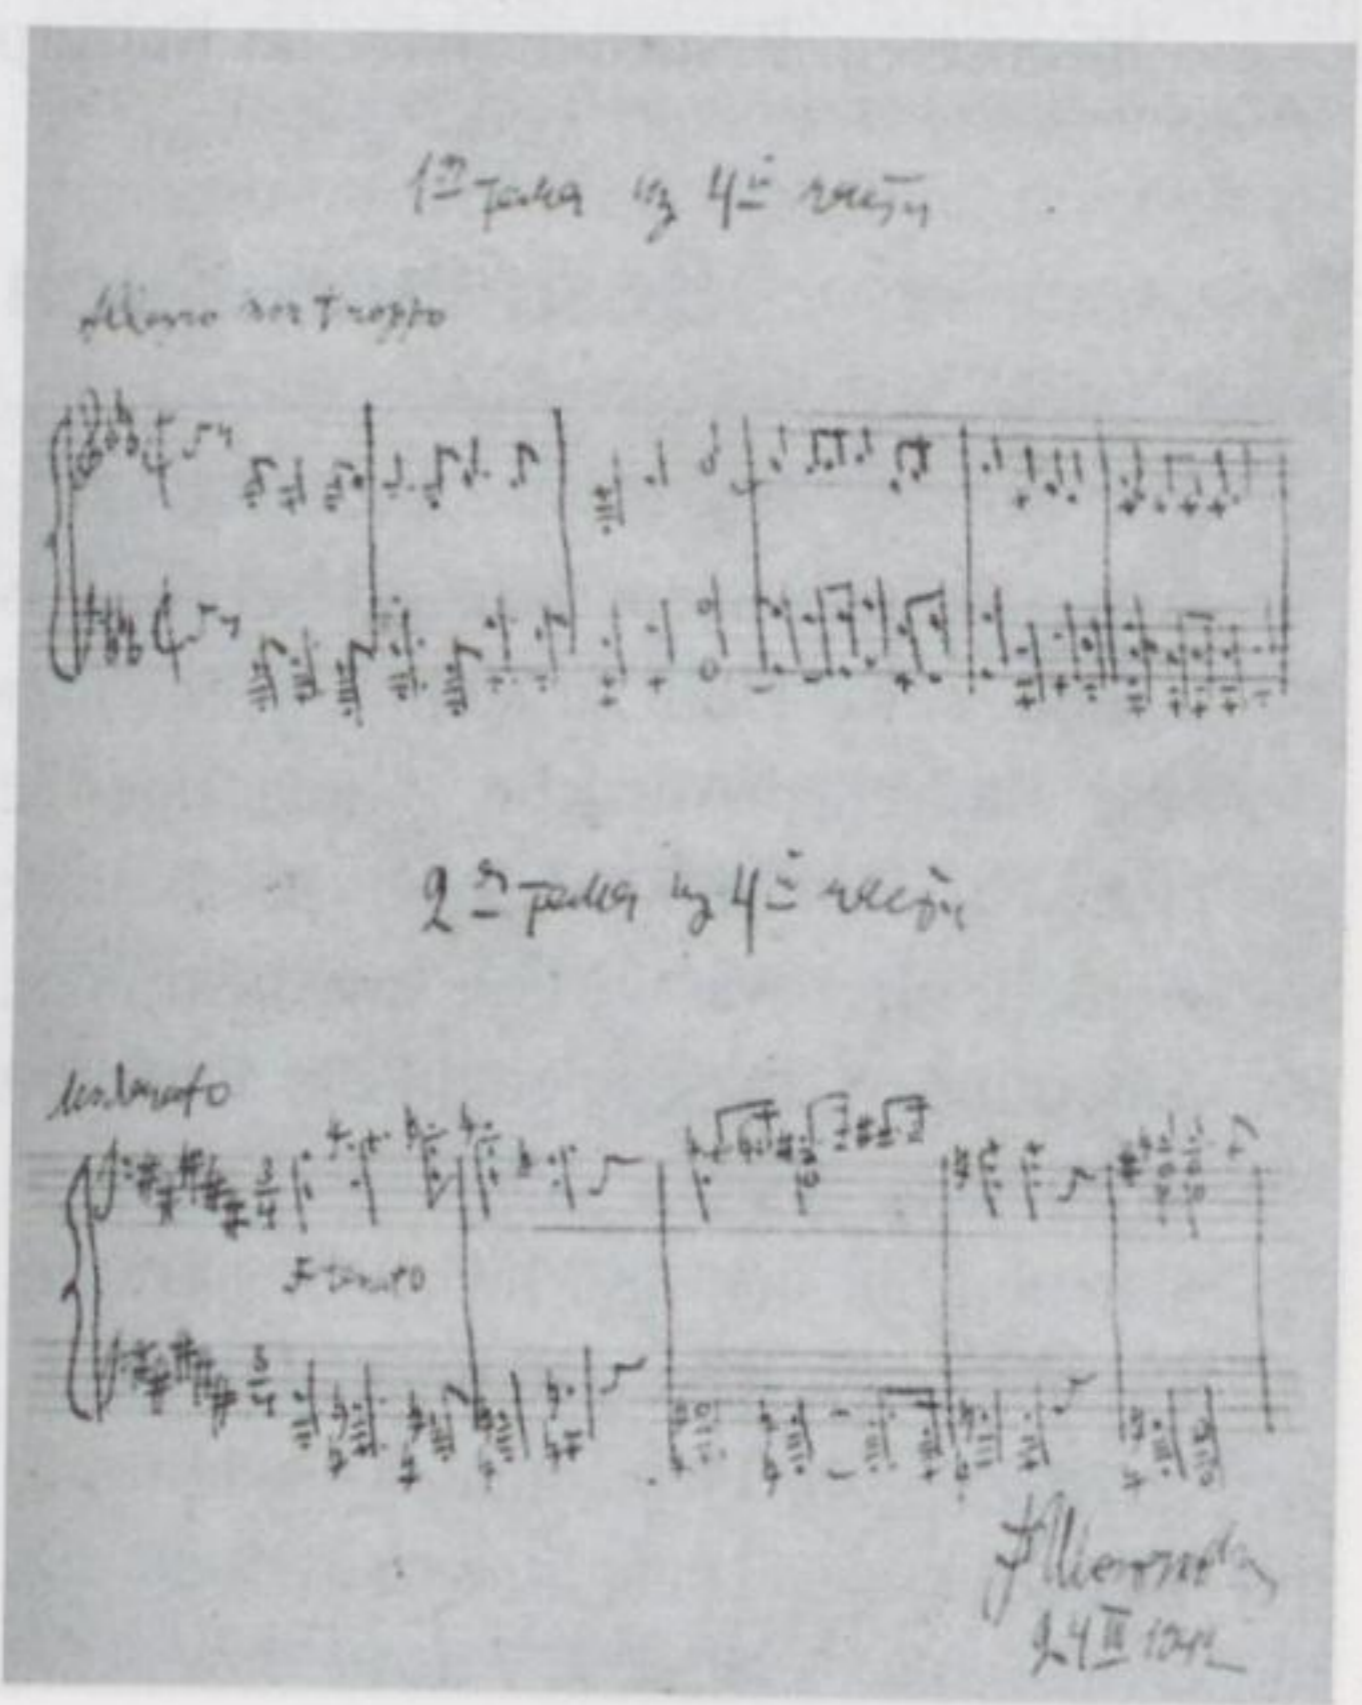 1ая тема из 4й части
Allegro non troppo
2ая тема из 4й части
Moderato
3
4
F tenuto
3
4
Д Шостакович
24 III 1942